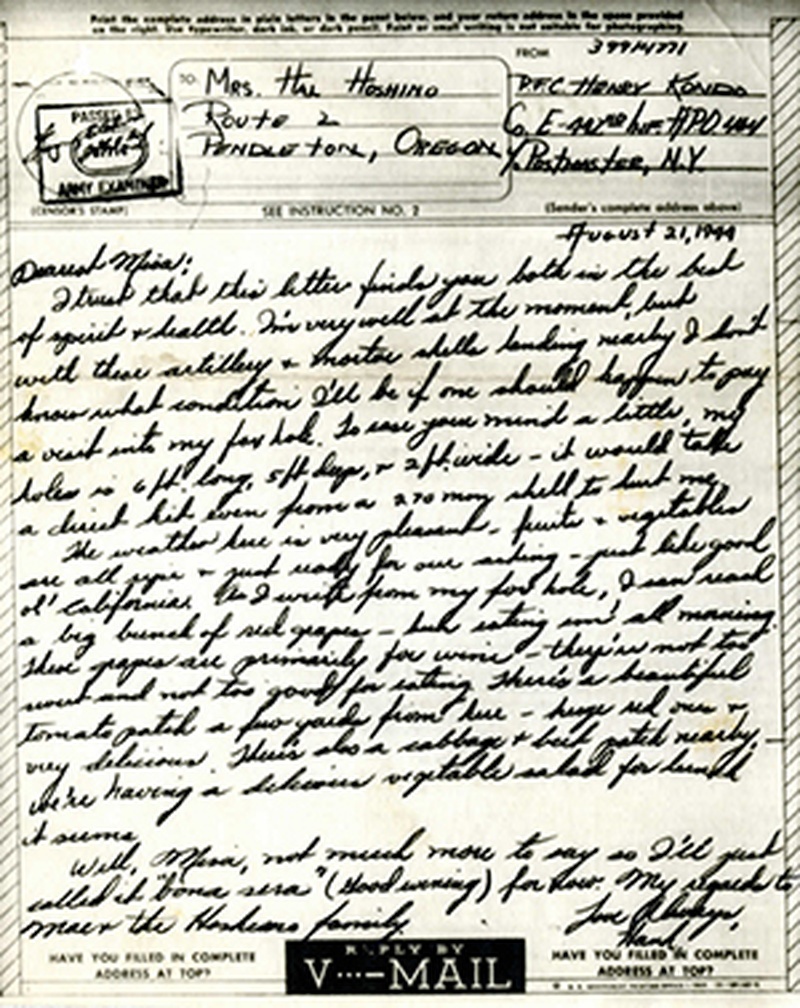 Print the complete address in plain letters in the panel below, and your return address in the space provided
on the right. Use typewriter, dark ink, or dark pencil. Faint or small writing is not suitable for photographing.
FROM
39914771
TO:
MRS. HAL HOSHINO
ROUTE 2
PENDLETON, OREGON
P.F.C HENRY KONDO
Co. E-442nd Inf. APO 464
% Postmaster, N.Y.
PASSED BY
ARMY EXAMINER
(CENSOR'S STAMP)
SEE INSTRUCTION NO. 2
(Sender's complete address above)
AUGUST 21, 1944
Dearest Misa:
I trust that this letter finds you both in the best
of spirit & health. I'm very well at the moment, but
with these artillery & mortar shells landing nearby I don't
know what condition I'll be if one should happen to pay
a visit into my fox hole. To ease your mind a little, my
holes is 6 ft. long, 5 ft deep, & 2 ft. wide - it would take
a direct hit even from a 270 mm shell to hurt me.
The weather here is very pleasant - fruits & vegetables
are all ripe & just ready for our eating - just like good
ol' California. As I write from my fox hole, I can reach
a big bunch of red grapes - been eating em' all morning.
These grapes are primarily for wine - they're not too
sweet and not too good for eating. There's a beautiful
tomato patch a few yards from here - huge red ones &
very delicious. There's also a cabbage & beet patch nearby, -
we're having a delicious vegetable salad for lunch
it seems
Well, Misa, not much more to say so I'll just
called it "bona sera" (Good evening) for now. My regards to
the Hoshino family
Love Always,
Hank
HAVE YOU FILLED IN COMPLETE
ADDRESS AT TOP?
REPLY BY
V···—MAIL
HAVE YOU FILLED IN COMPLETE
ADDRESS AT TOP?